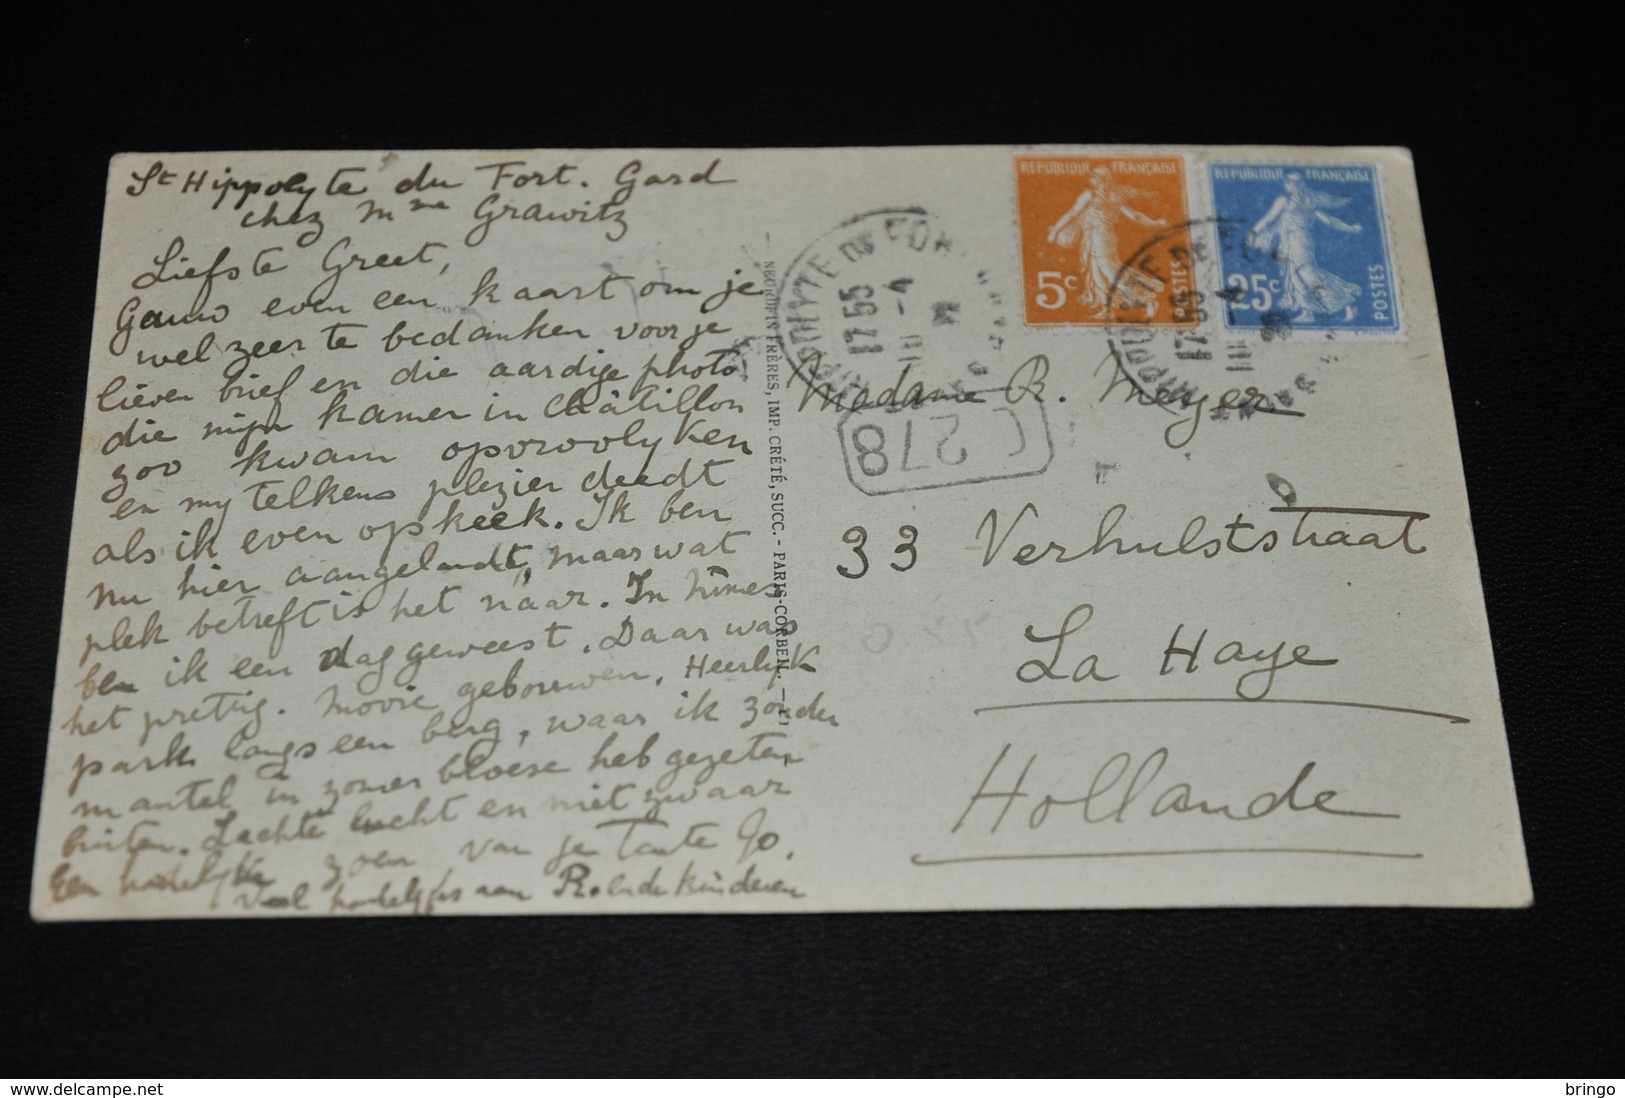 St Hippolyte du Fort. Gard
chez Mme Grawitz
Liefste Greet,
Gauw even een kaart om je
wel zeer te bedanken voor je
lieven brief en die aardige photo
die mijn kamer in Châtillon
zoo kwam opvroolyken
en my telkens plezier deedt
als ik even op keek. Ik ben
nu hier aangelandt, maar wat
plek betreft is het naar. In Nîmes
ben ik een dag geweest. Daar was
het prettig. Mooie gebouwen, Heerlyk
park langs een berg, waar ik zonder
mantel in zomer bloese heb gezeten
buiten. Zachte lucht en niet zwaar
Een hartelyk zoen van je Tante Jo.
Veel hartelyks aan R. en de kinderen
NEURDEIN FRÈRES, IMP. CRÉTÉ, SUCC. - PARIS-CORBEIL. -
REPUBLIQUE FRANÇAISE
5c
POSTES
REPUBLIQUE FRANÇAISE
25c
POSTES
HIPPOLYTE DU FORT
17 55
-4
HIPPOLYTE DU FORT
17 55
-4
C 278
Madame R. Meyer
33 Verhulststraat
La Haye
Hollande
delcampe.net
bringo